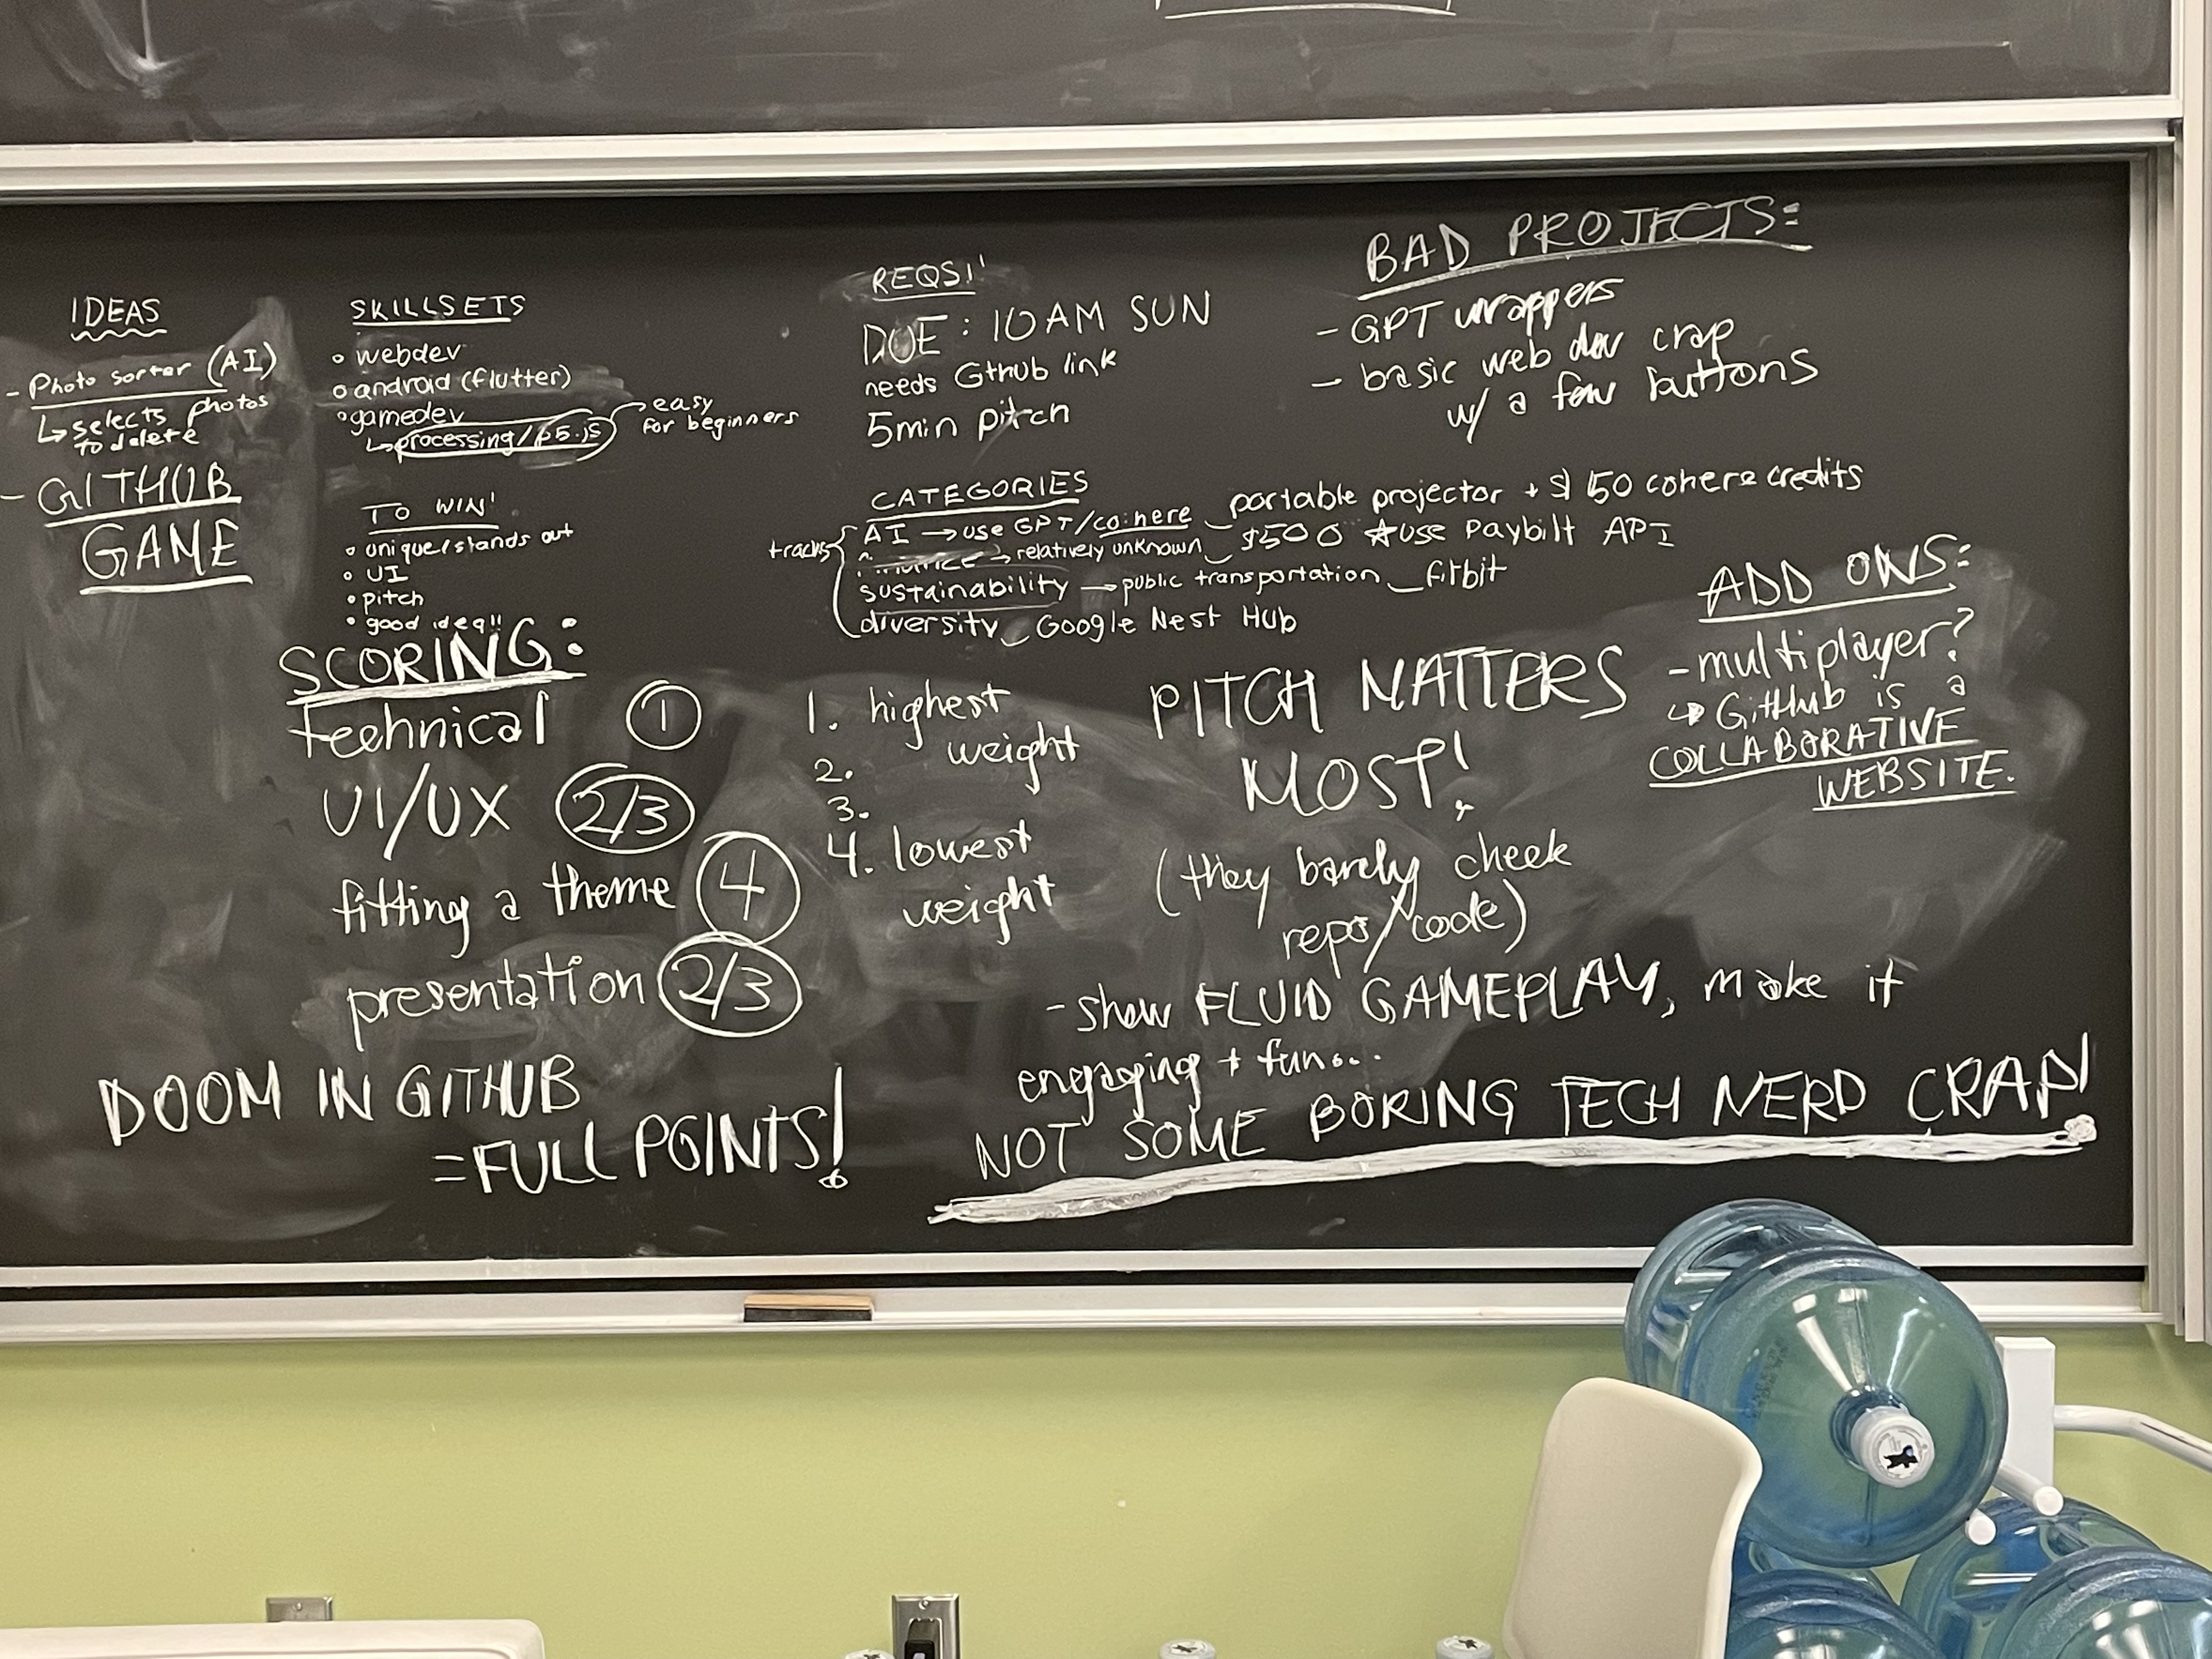 IDEAS
- Photo sorter (AI)
↳ selects photos
to delete
- GITHUB
GAME
SKILLSETS
• webdev
• android (flutter)
• gamedev
↳ processing/p5.js → easy
for beginners
TO WIN!
• unique/stands out
• UI
• pitch
• good idea!!
REQS!'
DUE: 10AM SUN
needs Gthub link
5min pitch
BAD PROJECTS:
- GPT wrappers
- basic web dev crap
w/ a few buttons
CATEGORIES
tracks
AI → use GPT/co:here portable projector + $150 cohere credits
→ relatively unknown $500 ☆use Paybilt API
sustainability → public transportation fitbit
diversity Google Nest Hub
ADD ONS:
- multiplayer?
↳ GitHub is a
COLLABORATIVE
WEBSITE.
SCORING:
technical 1
UI/UX 2/3
fitting a theme 4
presentation 2/3
1. highest
weight
2.
3.
4. lowest
weight
PITCH MATTERS
MOST!
(they barely check
repo/code)
- show FLUID GAMEPLAY, make it
engaging + fun...
NOT SOME BORING TECH NERD CRAP!
DOOM IN GITHUB
= FULL POINTS!